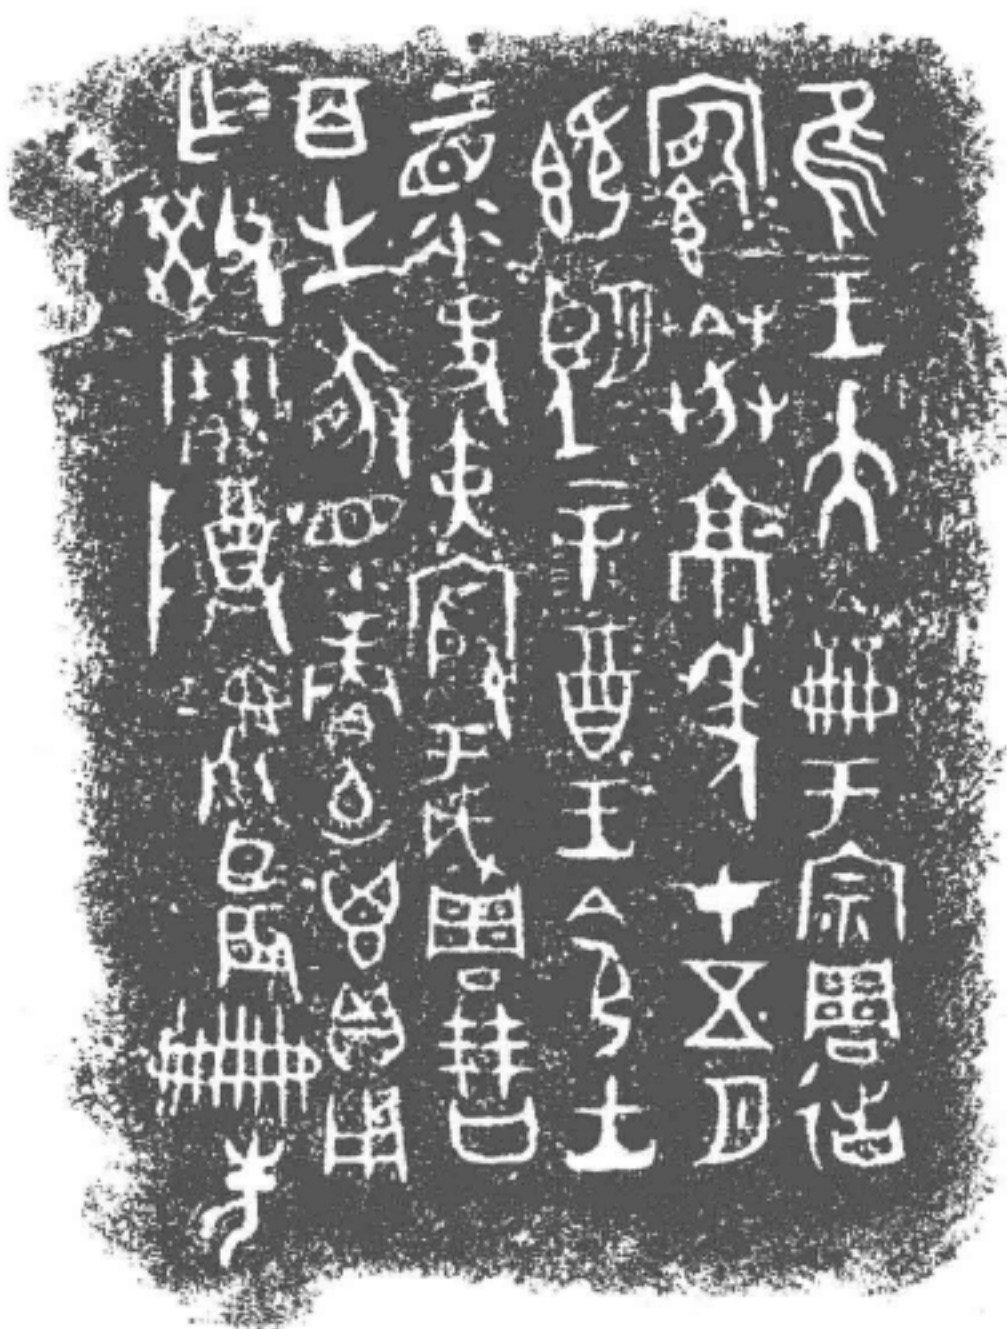 隹王大龠于宗周徣
𩛥𦱤京年才五月
既望辛酉王令士
上眔史寅殷于成周
百生豚眔賞卣鬯貝
用乍父癸寶尊彝臣辰冊